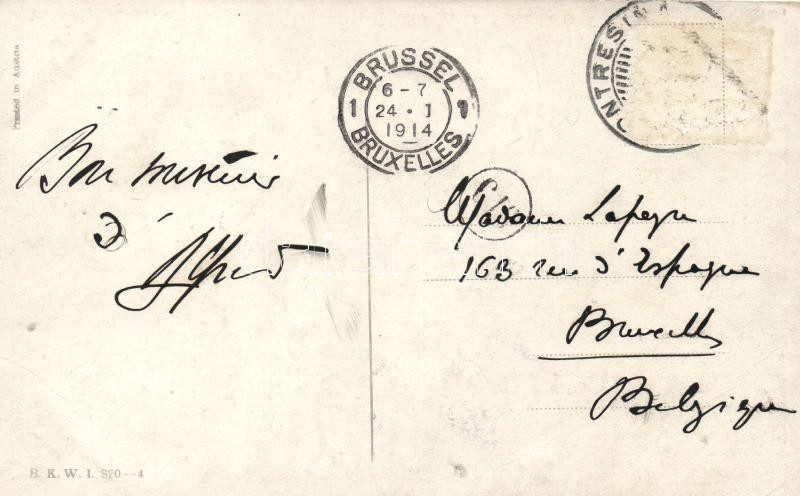 Printed in Austria
BRUSSEL
6-7
1 24 · I 1
1914
BRUXELLES
ONTRESINA
Bon souvenir
d'
Alfred
Madame Lapeyre
163 rue d'Espagne
Bruxelles
Belgique
B. K. W. I. 890-4